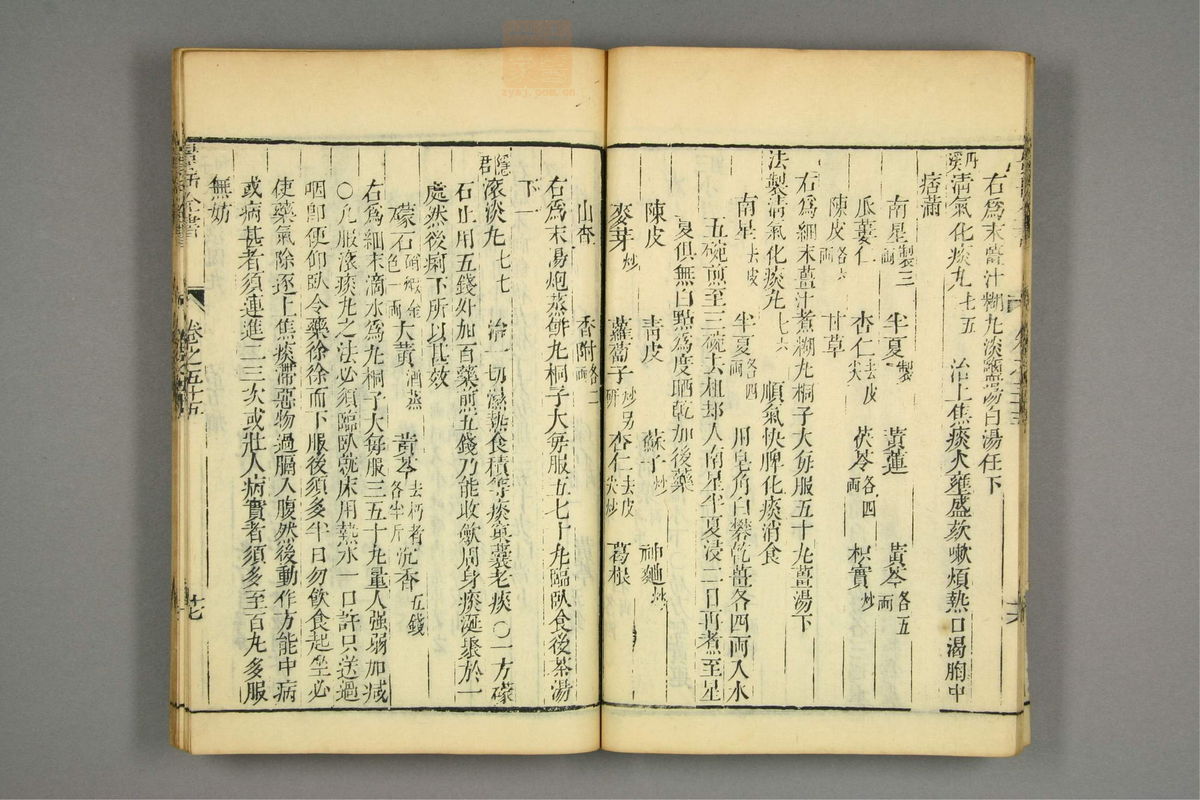 右爲末薑汁糊丸淡鹽湯白湯任下
丹溪清氣化痰丸七五 治上焦痰火壅盛欬嗽煩熱口渴胸中
痞滿
南星製三兩 半夏製 黄蓮 黄芩各五兩
瓜蔞仁 杏仁去皮尖 茯苓各四兩 枳實炒
陳皮各六兩 甘草
右爲細末薑汁煮糊丸桐子大每服五十丸薑湯下
法製清氣化痰丸七六 順氣快脾化痰消食
南星去皮 半夏各四兩 用皂角白礬乾薑各四兩入水
五碗煎至三碗去柤却入南星半夏浸二日再煮至星
夏俱無白點爲度晒乾加後藥
陳皮 青皮 蘇子炒 神麯炒
麥芽炒 蘿蔔子炒另研 杏仁去皮尖炒 葛根
山查 香附各二兩
右爲末湯炮蒸餅丸桐子大每服五七十丸臨臥食後茶湯
下
隱君滾痰丸七七 治一切濕熱食積等痰窠囊老痰○一方礞
石止用五錢外加百藥煎五錢乃能收歛周身痰涎聚於一
處然後痢下所以甚效
礞石硝煅金色一兩 大黄酒蒸 黄芩去朽者各半斤 沉香五錢
右爲細末滴水爲丸桐子大每服三五十丸量人强弱加减
○凡服滾痰丸之法必須臨臥就床用熱水一口許只送過
咽卽便仰臥令藥徐徐而下服後須多半日勿飲食起坐必
使藥氣除逐上焦痰滯惡物過膈入腹然後動作方能中病
或病甚者須連進二三次或壯人病實者須多至百丸多服
無妨
卷之五十五